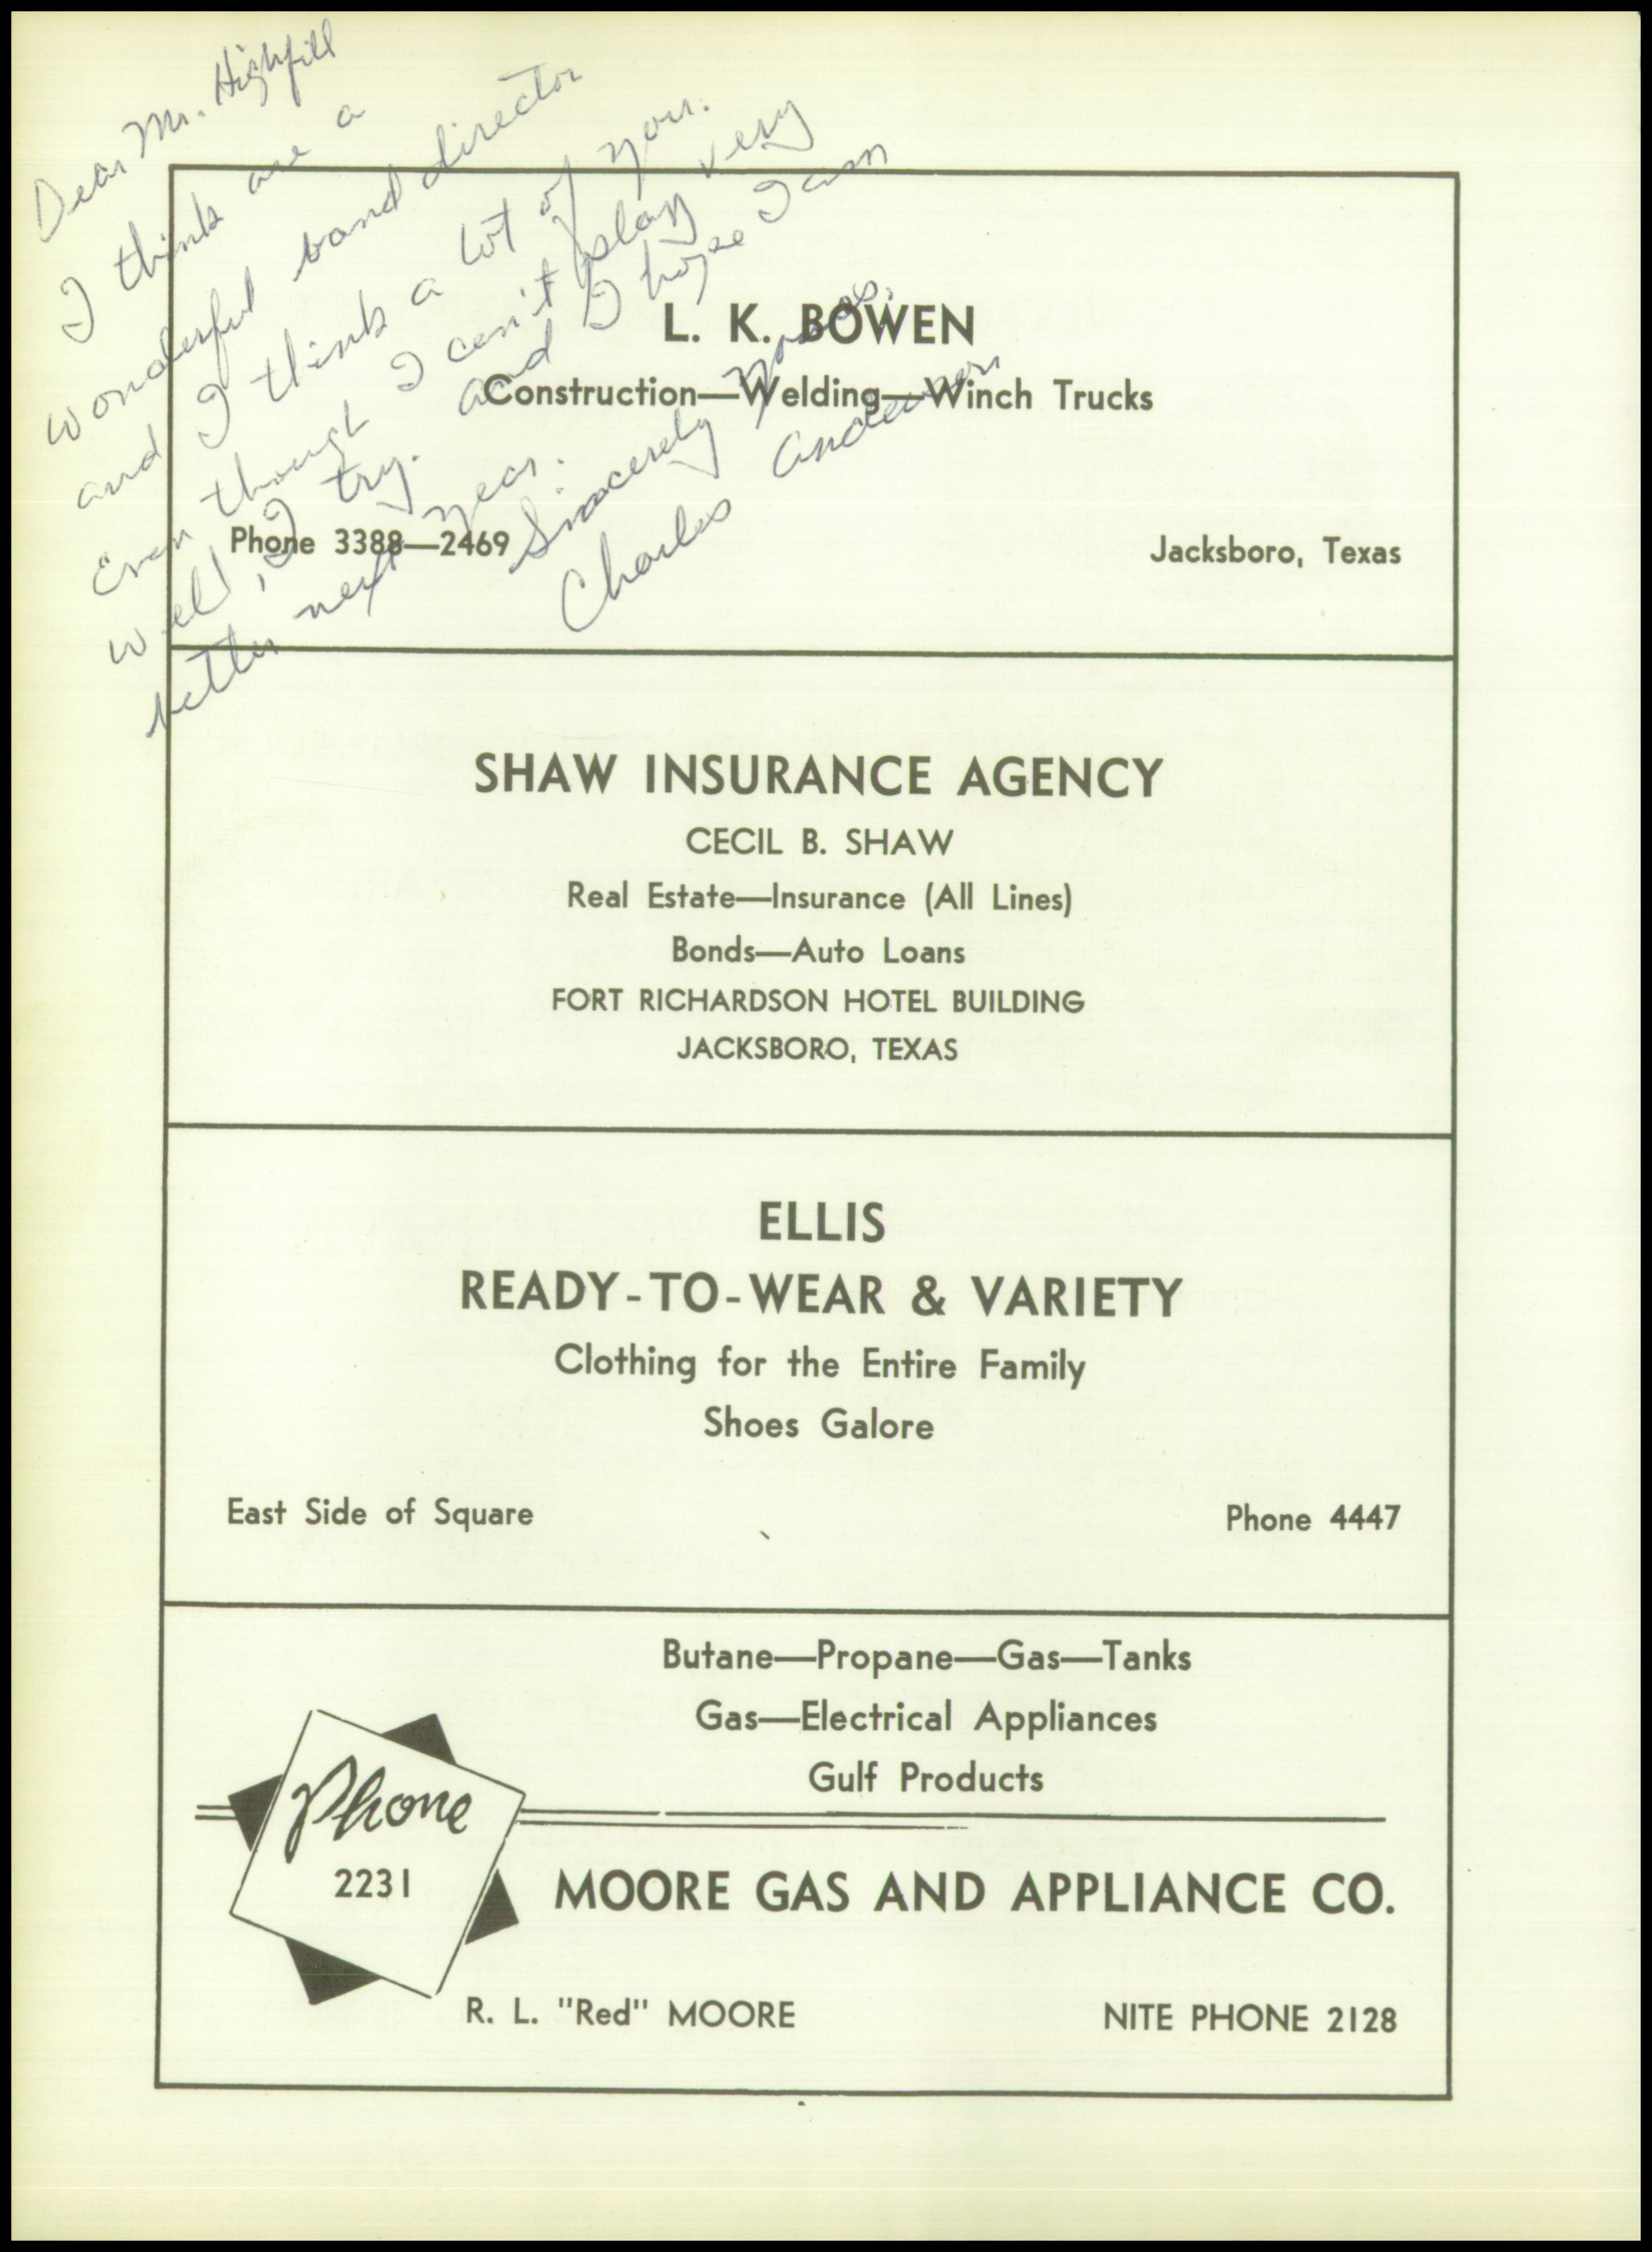 Dear Mr. Highfill
I think are a
wonderful band director
and I think a lot of you.
Even though I can't play very
well, I try. and I hope I am
better next year.
Sincerely yours,
Charles Anderson
L. K. BOWEN
Construction—Welding—Winch Trucks
Phone 3388—2469 Jacksboro, Texas
SHAW INSURANCE AGENCY
CECIL B. SHAW
Real Estate—Insurance (All Lines)
Bonds—Auto Loans
FORT RICHARDSON HOTEL BUILDING
JACKSBORO, TEXAS
ELLIS
READY-TO-WEAR & VARIETY
Clothing for the Entire Family
Shoes Galore
East Side of Square Phone 4447
Butane—Propane—Gas—Tanks
Gas—Electrical Appliances
Gulf Products
Phone
2231
MOORE GAS AND APPLIANCE CO.
R. L. "Red" MOORE NITE PHONE 2128